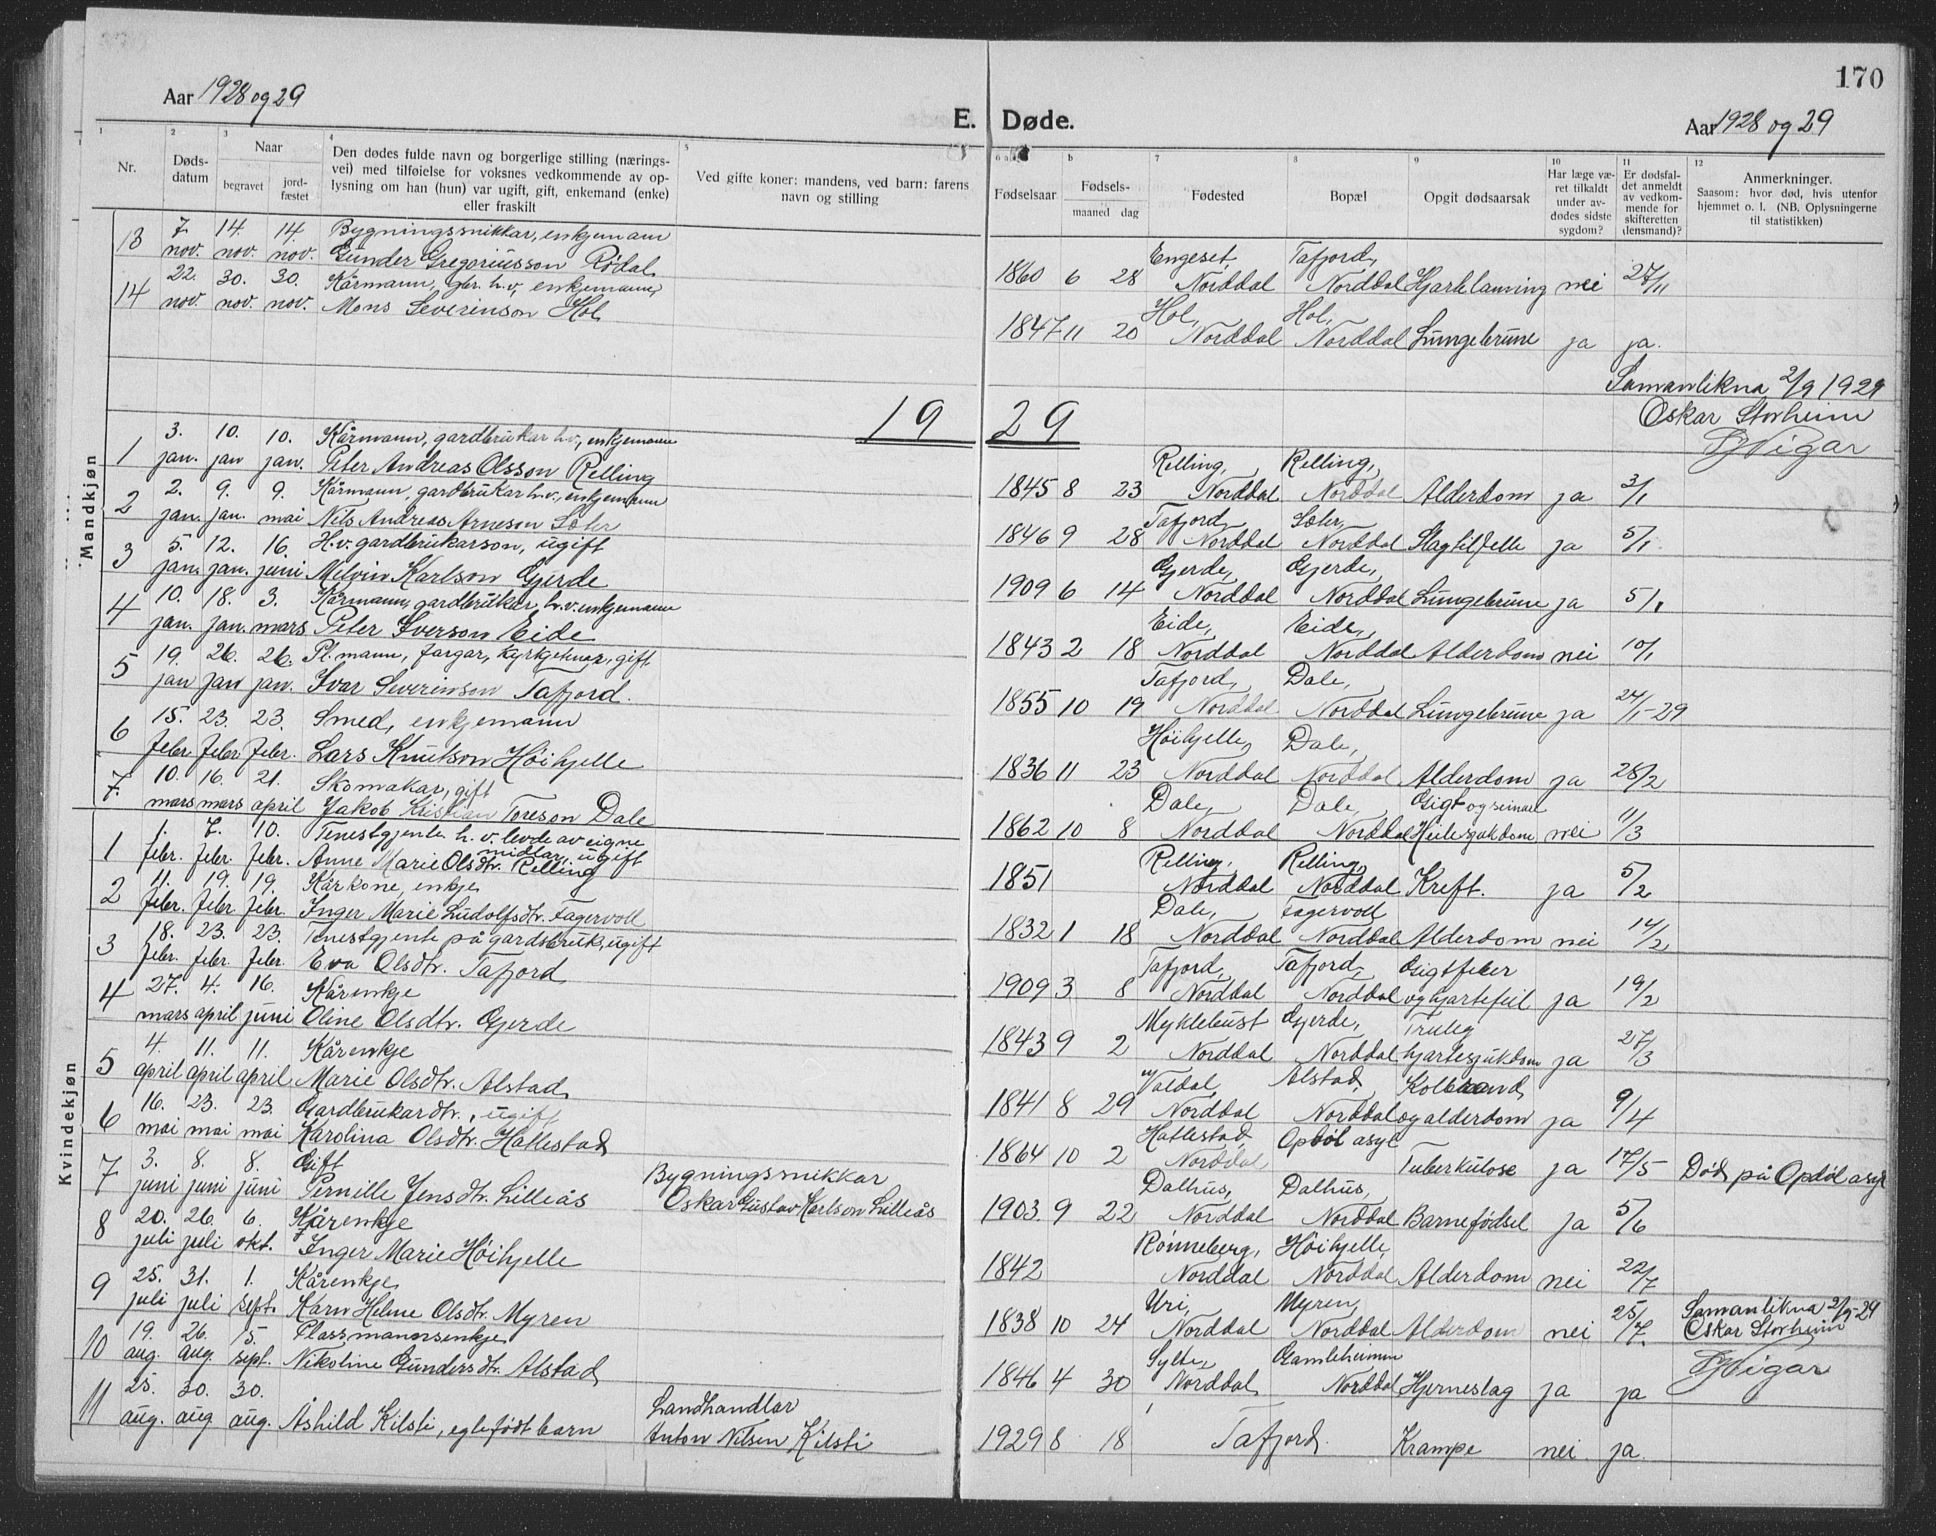 170
Aar 1928 og 29
E. Døde.
Aar 1928 og 29
1 2 3 4 5 6 a b 7 8 9 10 11 12
Nr.
Døds-
datum
Naar
begravet
jord-
fæstet
Den dødes fulde navn og borgerlige stilling (nærings-
vei) med tilføielse for voksnes vedkommende av op-
lysning om han (hun) var ugift, gift, enkemand (enke)
eller fraskilt
Ved gifte koner: mandens, ved barn: farens
navn og stilling
Fødselsaar
Fødsels-
maaned dag
Fødested
Bopæl
Opgit dødsaarsak
Har læge væ-
ret tilkaldt
under av-
dødes sidste
sygdom?
Er dødsfal-
det anmeldt
av vedkom-
mende for
skifteretten
(lensmand)?
Anmerkninger.
Saasom: hvor død, hvis utenfor
hjemmet o. l. (NB. Oplysningerne
til statistikken)
13 7. 14. 14. Bygningssnikkar, enkjemann
nov. nov. nov. Gunder Gregoriusson Rødal
Engeset, Tafjord,
1860 6 28 Norddal Norddal Hjartelamming nei 27/11
14 22. 30. 30. Kårmann, gbr. h.v, enkjemann,
nov. nov. nov. Mons Severinson Hol
Hol, Hol,
1847 11 20 Norddal Norddal Lungebrune ja ja.
Samanlikna 2/9 1929
Oskar Storheim
1929
Mandkjøn
1 3. 10. 10. Kårmann, gardbrukar h.v, enkjemann
jan. jan jan. Peter Andreas Olsson Relling
Relling, Relling,
1845 8 23 Norddal Norddal Alderdom ja 3/1
2 2. 9. 9. Kårmann, gardbrukar h.v, enkjemann
jan. jan. mai Nils Andreas Arneson Sæter
Tafjord Sæter,
1846 9 28 Norddal Norddal Slagtilfelle ja 5/1
3 5. 12. 16. H.v. gardbrukarson, ugift
jan. jan. juni Melvin Karlson Gjerde
Gjerde, Gjerde,
1909 6 14 Norddal Norddal Lungebrune ja 5/1
4 10. 18. 3. Kårmann, gardbrukar, h.v. enkjemann
jan. jan. mars Peter Iverson Eide
Eide, Eide,
1843 2 18 Norddal Norddal Alderdom nei 10/1
5 19. 26. 26. Pl.mann, fargar, kyrkjetenar, gift
jan jan jan. Ivar Severinson Tafjord.
Tafjord, Dale,
1855 10 19 Norddal Norddal Lungebrune ja 24/1-29
6 15. 23. 23. Smed, enkjemann
febr. febr. febr. Lars Knutson Höihjelle
Höihjelle, Dale,
1836 11 23 Norddal Norddal Alderdom ja 28/2
7. 10. 16. 21. Skomakar, gift
mars mars april Jakob Kristian Toreson Dale
Dale, Dale, Gigt og seinare
1862 10 8 Norddal Norddal nei 11/3
Kvindekjøn
1 1. 7. 10. Tenestgjente h.v. levde av eigne
midlar, ugift
febr. febr. febr. Anne Marie Olsdtr. Relling
Relling, Relling,
1851 Norddal Norddal Kreft. ja 5/2
2 11. 19. 19. Kårkone, enkje
febr. febr. febr. Inger Marie Ludolfsdtr. Fagervoll
Dale, Fagervoll
1832 1 18 Norddal Norddal Alderdom nei 14/2
3 18. 23. 23. Tenestgjente på gardsbruk, ugift
febr. febr. febr. Eva Olsdtr. Tafjord
Tafjord, Tafjord, Gigtfeber
1909 3 8 Norddal Norddal og hjartefeil ja 19/2
4 27. 4. 16. Kårenkje
mars april juni Oline Olsdtr. Gjerde
Myklebust Gjerde, Truleg
1843 9 2 Norddal Norddal hjartesjukdom ja 27/3
5 4. 11. 11. Kårenkje
april april april Marie Olsdtr. Alstad
Valdal, Alstad, Kolbrand
1841 8 29 Norddal Norddal og alderdom ja 9/4
6 16. 23. 23. Gardbrukardtr., ugift
mai mai mai Karolina Olsdtr. Hatlestad
Hatlestad, Opdöl asyl
1864 10 2 Norddal Tuberkulose ja 17/5 Död på Opdöl asyl
7 3. 8. 8. Gift
juni juni juni Pernille Jensdtr. Lilleås
Bygningssnikkar
Oskar Gustav Karlson Lilleås
Dalhus, Dalhus,
1903. 9 22 Norddal Norddal Barnefödsel ja 5/6
8 20. 26. 6. Kårenkje
juli juli okt. Inger Marie Höihjelle
Rönneberg, Höihjelle,
1842 Norddal Norddal Alderdom nei 22/7
9 25. 31. 1. Kårenkje
juli juli sept. Karn Helene Olsdtr. Myren
Uri, Myren,
1838 10 24 Norddal Norddal Alderdom nei 25/7. Samanlikna 2/9-29
Oskar Storheim
10 19. 26. 15. Plassmannsenkje
aug. aug. sept. Nikoline Gundersdtr. Alstad
Sylte, Gamleheimen
1846 4 30 Norddal Norddal Hjerneslag ja ja
11 25. 30. 30.
aug. aug aug. Åshild Kilsti, egtefödt barn
Landhandlar
Anton Nilsen Kilsti
1929 8 18 Tafjord. Krampe nei. ja.